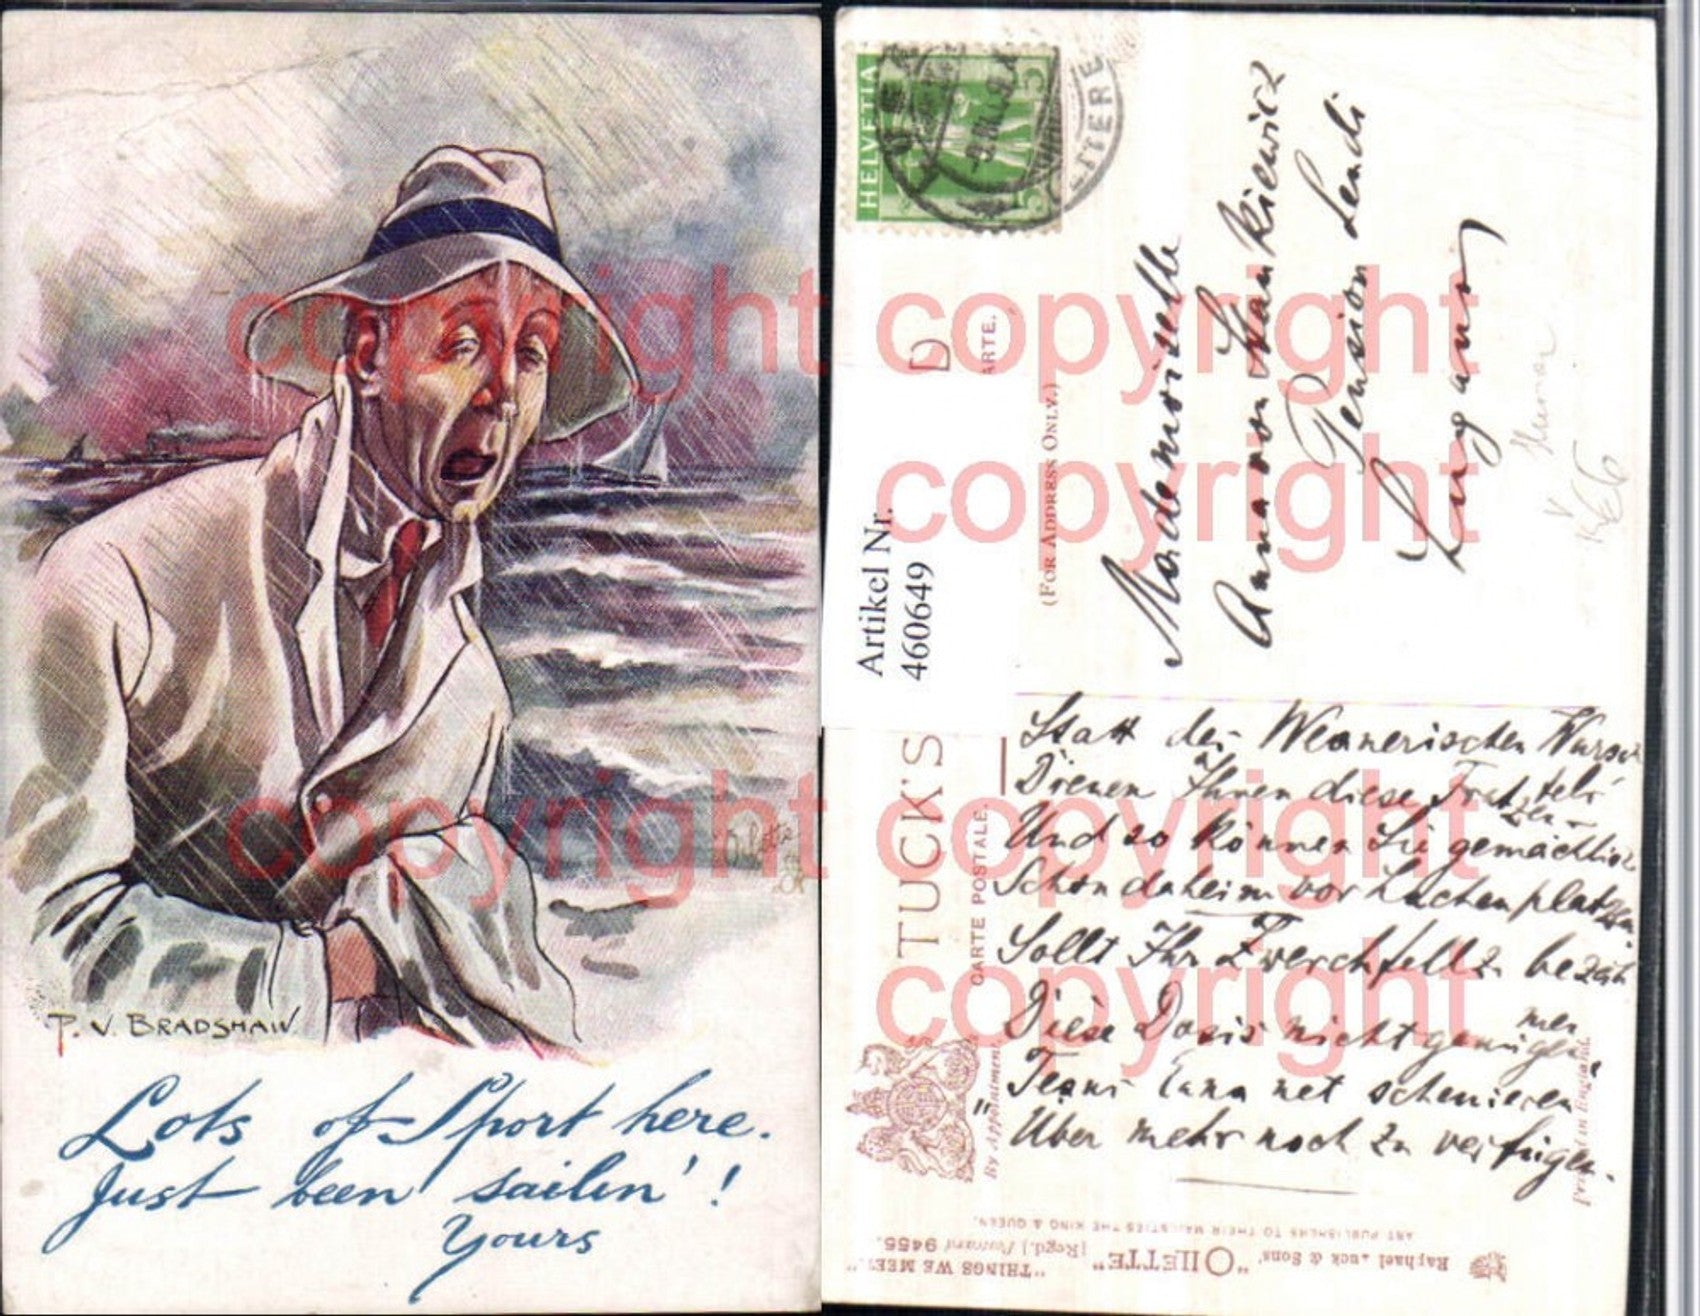 P. V. BRADSHAW
Lots of Sport here.
Just been sailin'!
Yours
Oilette
HELVETIA
5 5
Artikel Nr.
460649
D
ARTE.
(FOR ADDRESS ONLY.)
Mademoiselle
Anna von Stankiewicz
Pension Lendi
Lugano
TUCK'S
CARTE POSTALE.
By Appointment.
Statt der
Dienen Ihnen diese
Und so können Sie gemächlich
Schon daheim vor Lachen platzen.
Sollt Ihr Zwerchfell z.
Diese Dosis nicht genügen
net schenieren
Über mehr noch zu verfügen.
Print in England.
Raphael Tuck & Sons' "OILETTE" [Regd.] Postcard 9455.
"THINGS WE MEET."
ART PUBLISHERS TO THEIR MAJESTIES THE KING & QUEEN.
copyright
copyright
copyright
copyright
copyright
copyright